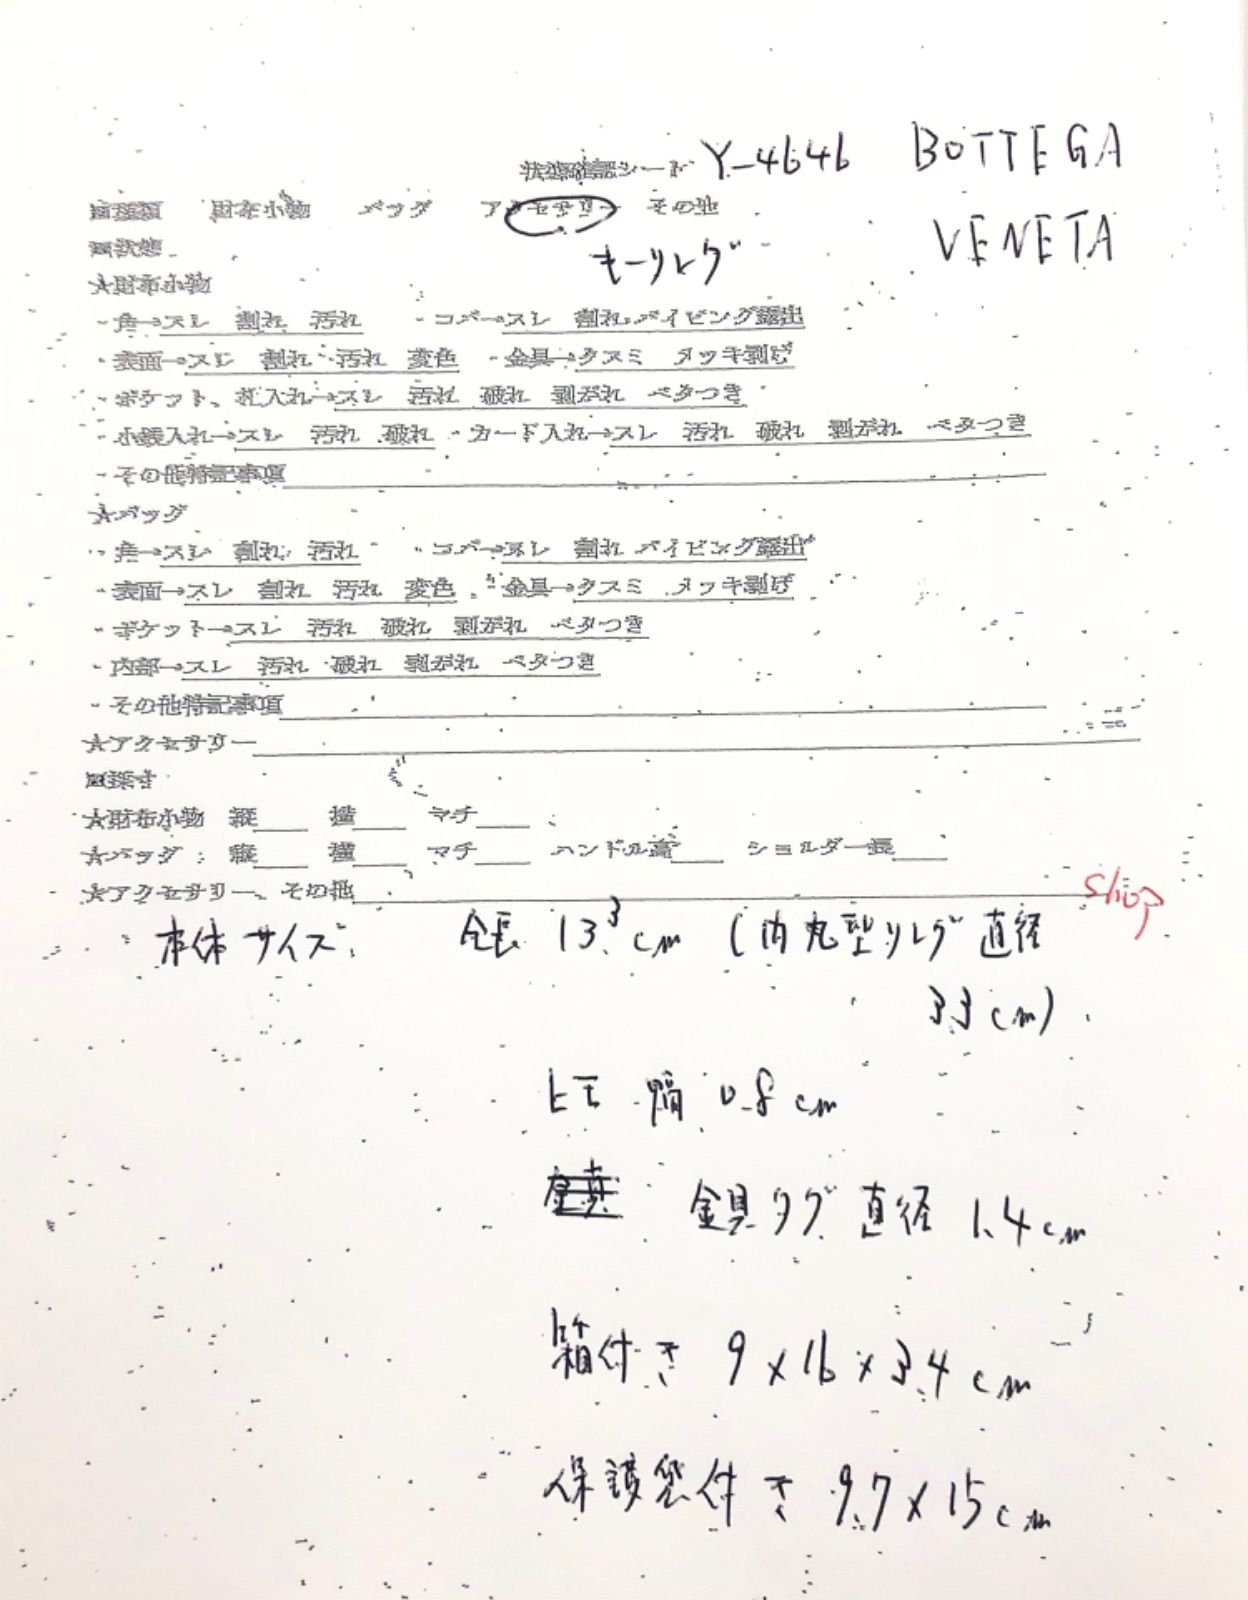 状態確認シート Y-4646 BOTTEGA
■種類 財布小物 バッグ アクセサリー その他 VENETA
■状態 キーリング
★財布小物
・角→スレ 割れ 汚れ ・コバ→スレ 割れ パイピング露出
・表面→スレ 割れ 汚れ 変色 ・金具→クスミ メッキ剥げ
・ポケット、札入れ→スレ 汚れ 破れ 剥がれ ベタつき
・小銭入れ→スレ 汚れ 破れ ・カード入れ→スレ 汚れ 破れ 剥がれ ベタつき
・その他特記事項
★バッグ
・角→スレ 割れ 汚れ ・コバ→スレ 割れ パイピング露出
・表面→スレ 割れ 汚れ 変色 ・金具→クスミ メッキ剥げ
・ポケット→スレ 汚れ 破れ 剥がれ ベタつき
・内部→スレ 汚れ 破れ 剥がれ ベタつき
・その他特記事項
★アクセサリー
■採寸
★財布小物 縦 横 マチ
★バッグ: 縦 横 マチ ハンドル高 ショルダー長
★アクセサリー、その他 shop
本体サイズ 全長 13.3cm (内丸型リング直径
3.3cm)
ヒモ 幅 0.8cm
金具タグ 直径 1.4cm
箱付き 9×16×3.4cm
保護袋付き 9.7×15cm